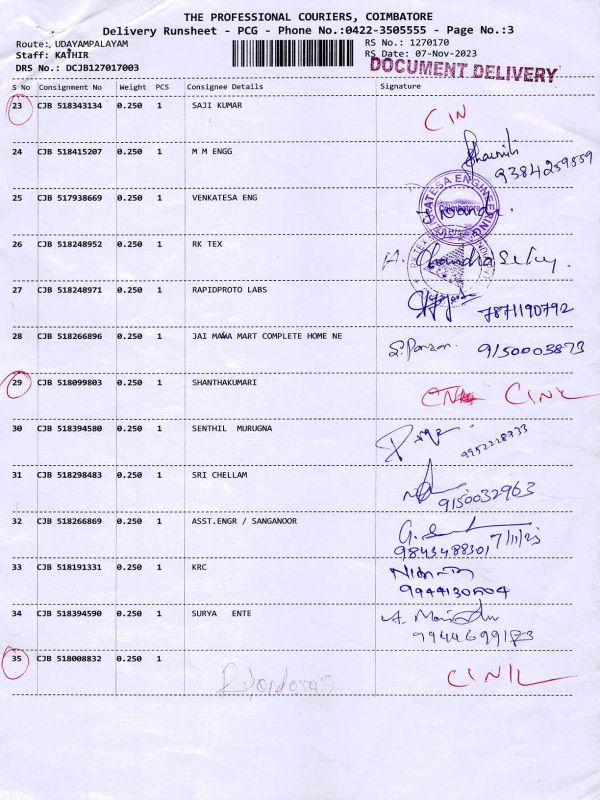 THE PROFESSIONAL COURIERS, COIMBATORE
Delivery Runsheet - PCG - Phone No.:0422-3505555 - Page No.:3
Route: UDAYAMPALAYAM
RS No.: 1270170
Staff: KATHIR
RS Date: 07-Nov-2023
DRS No.: DCJB127017003
DOCUMENT DELIVERY
S No Consignment No Weight PCS Consignee Details Signature
23 CJB 518343134 0.250 1 SAJI KUMAR CIN
24 CJB 518415207 0.250 1 M M ENGG
9384259559
25 CJB 517938669 0.250 1 VENKATESA ENG
Coimbatore
26 CJB 518248952 0.250 1 RK TEX
27 CJB 518248971 0.250 1 RAPIDPROTO LABS
7871190792
28 CJB 518266896 0.250 1 JAI MAHA MART COMPLETE HOME NE
9150003873
29 CJB 518099803 0.250 1 SHANTHAKUMARI
30 CJB 518394580 0.250 1 SENTHIL MURUGNA
31 CJB 518298483 0.250 1 SRI CHELLAM
9150032963
32 CJB 518266869 0.250 1 ASST.ENGR / SANGANOOR
9843488301 7/11/23
33 CJB 518191331 0.250 1 KRC
34 CJB 518394590 0.250 1 SURYA ENTE
35 CJB 518008832 0.250 1